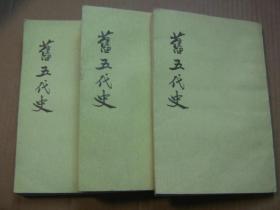 舊五代史
舊五代史
舊五代史